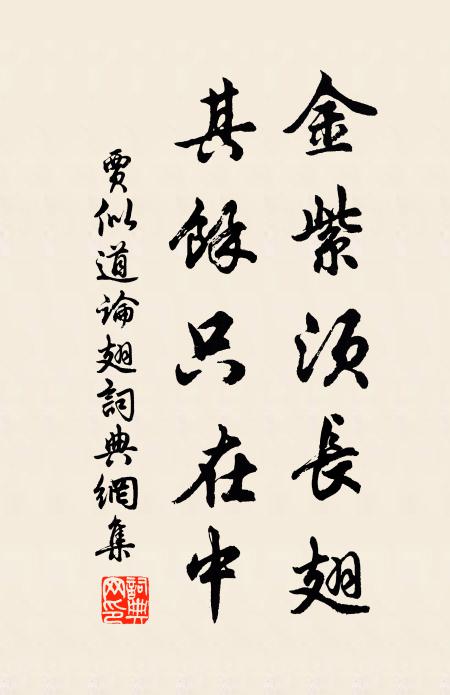 金紫須長翅
其餘只在中
賈似道論翅詞典網集
詞典网印